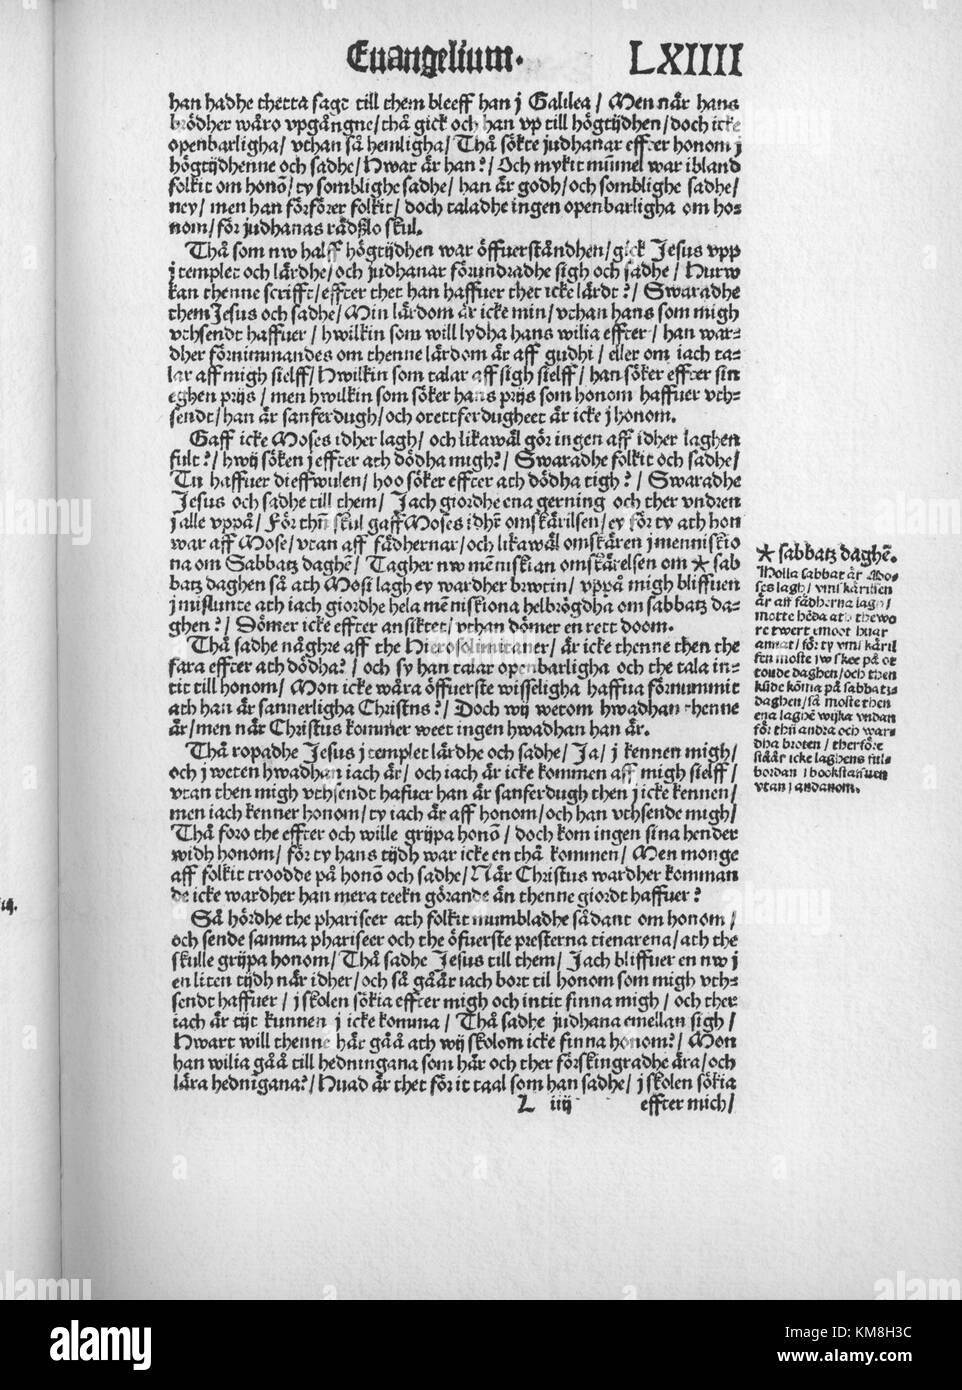 Euangelium. LXIIII
han hadhe thetta sagt till them bleeff han j Galilea / Men när hans
brödher wåro vpgångne / thå gick och han vp till högtijdhen / doch icke
openbarligha / vthan så hemligha / Thå sökte judhanar effter honom j
högtijdhenne och sadhe / Hwar är han? / Och mykit mummel war ibland
folkit om honō / ty somblighe sadhe / han är godh / och somblighe sadhe /
ney / men han förförer folkit / doch taladhe ingen openbarligha om ho=
nom / för judhanas rädßlo skul.
Thå som nw halff högtijdhen war öffuerståndhen / gick Jesus vpp
j templet och lärdhe / och judhanar förundradhe sigh och sadhe / Hurw
kan thenne scrifft / effter thet han haffuer thet icke lärdt? / Swaradhe
them Jesus och sadhe / Min lärdom är icke min / vthan hans som migh
vthsendt haffuer / hwilkin som will lydha hans wilia effter / han war=
dher förnimmandes om thenne lärdom är aff gudhi / eller om iach ta=
lar aff migh sielff / Hwilkin som talar aff sigh sielff / han söker effter sin
eghen prijs / men hwilkin som söker hans prijs som honom haffuer vth=
sendt / han är sanferdugh / och orettferdugheet är icke j honom.
Gaff icke Moses idher lagh / och likawäl gör ingen aff idher laghen
fult? / hwij söken j effter ath dödha migh? / Swaradhe folkit och sadhe /
Tu haffuer dieffwulen / hoo söker effter ath dödha tigh? / Swaradhe
Jesus och sadhe till them / Jach giordhe ena gerning och ther vndren
j alle vppå / För thñ skul gaff Moses idhr̄ omskärilsen / ey för ty ath hon
war aff Mose / vtan aff fädhernar / och likawäl omskären j menniskio
na om Sabbatz daghē / Tagher nw mēniskian omskärelsen om * sab
batz daghen så ath Mosi lagh ey wardher brwtin / vppå migh bliffuen
j mislunte ath iach giordhe hela mēniskiona helbrögdha om sabbatz da=
ghen? / Dömer icke effter ansiktet / vthan dömer en rett doom.
Thå sadhe någhre aff the Hierosolimitaner / är icke thenne then the
fara effter ath dödha? / och sy han talar openbarligha och the tala in=
tit till honom / Mon icke wåra öffuerste wisseligha haffua förnummit
ath han är sannerligha Christus? / Doch wij wetom hwadhan thenne
är / men när Christus kommer weet ingen hwadhan han är.
Thå ropadhe Jesus j templet lärdhe och sadhe / Ja / j kennen migh /
och j weten hwadhan iach är / och iach är icke kommen aff migh sielff /
vtan then migh vthsendt hafuer han är sanferdugh then j icke kennen /
men iach kenner honom / ty iach är aff honom / och han vthsende migh /
Thå foro the effter och wille grijpa honō / doch kom ingen sina hender
widh honom / för ty hans tijdh war icke en thå kommen / Men monge
aff folkit troodde på honō och sadhe / När Christus wardher komman
de icke wardher han mera teekn görande än thenne giordt haffuer?
Så hördhe the phariseer ath folkit mumbladhe sådant om honom /
och sende samma phariseer och the öfuerste presterna tienarena / ath the
skulle grijpa honom / Thå sadhe Jesus till them / Jach bliffuer en nw j
en liten tijdh när idher / och så gåår iach bort til honom som migh vth=
sendt haffuer / j skolen sökia effter migh och intit finna migh / och ther
iach är tijt kunnen j icke komma / Thå sadhe judhana emellan sigh /
Hwart will thenne här gåå ath wij skolom icke finna honom? / Mon
han wilia gåå till hedningana som här och ther förskingradhe ära / och
lära hednigana? / Huad är thet för it taal som han sadhe / j skolen sökia
L iiij effter mich /
* sabbatz daghē.
Holla sabbat är Mo=
ses lagh / omskärilsen
är aff fädherna lagh /
motte bēda ath thewo
re twert emoot huar
annat / för ty omskäril
sen moste jw skee på ot
tonde daghen / och then
kūde kōma på sabbatz=
daghen / så moste then
ena laghē wijka vndan
för thñ andra och war=
dha broten / therföre
ståår icke laghens ful=
bordan i bookstafuen
vtan i andanom.
alamy
Image ID: KM8H3C
www.alamy.com